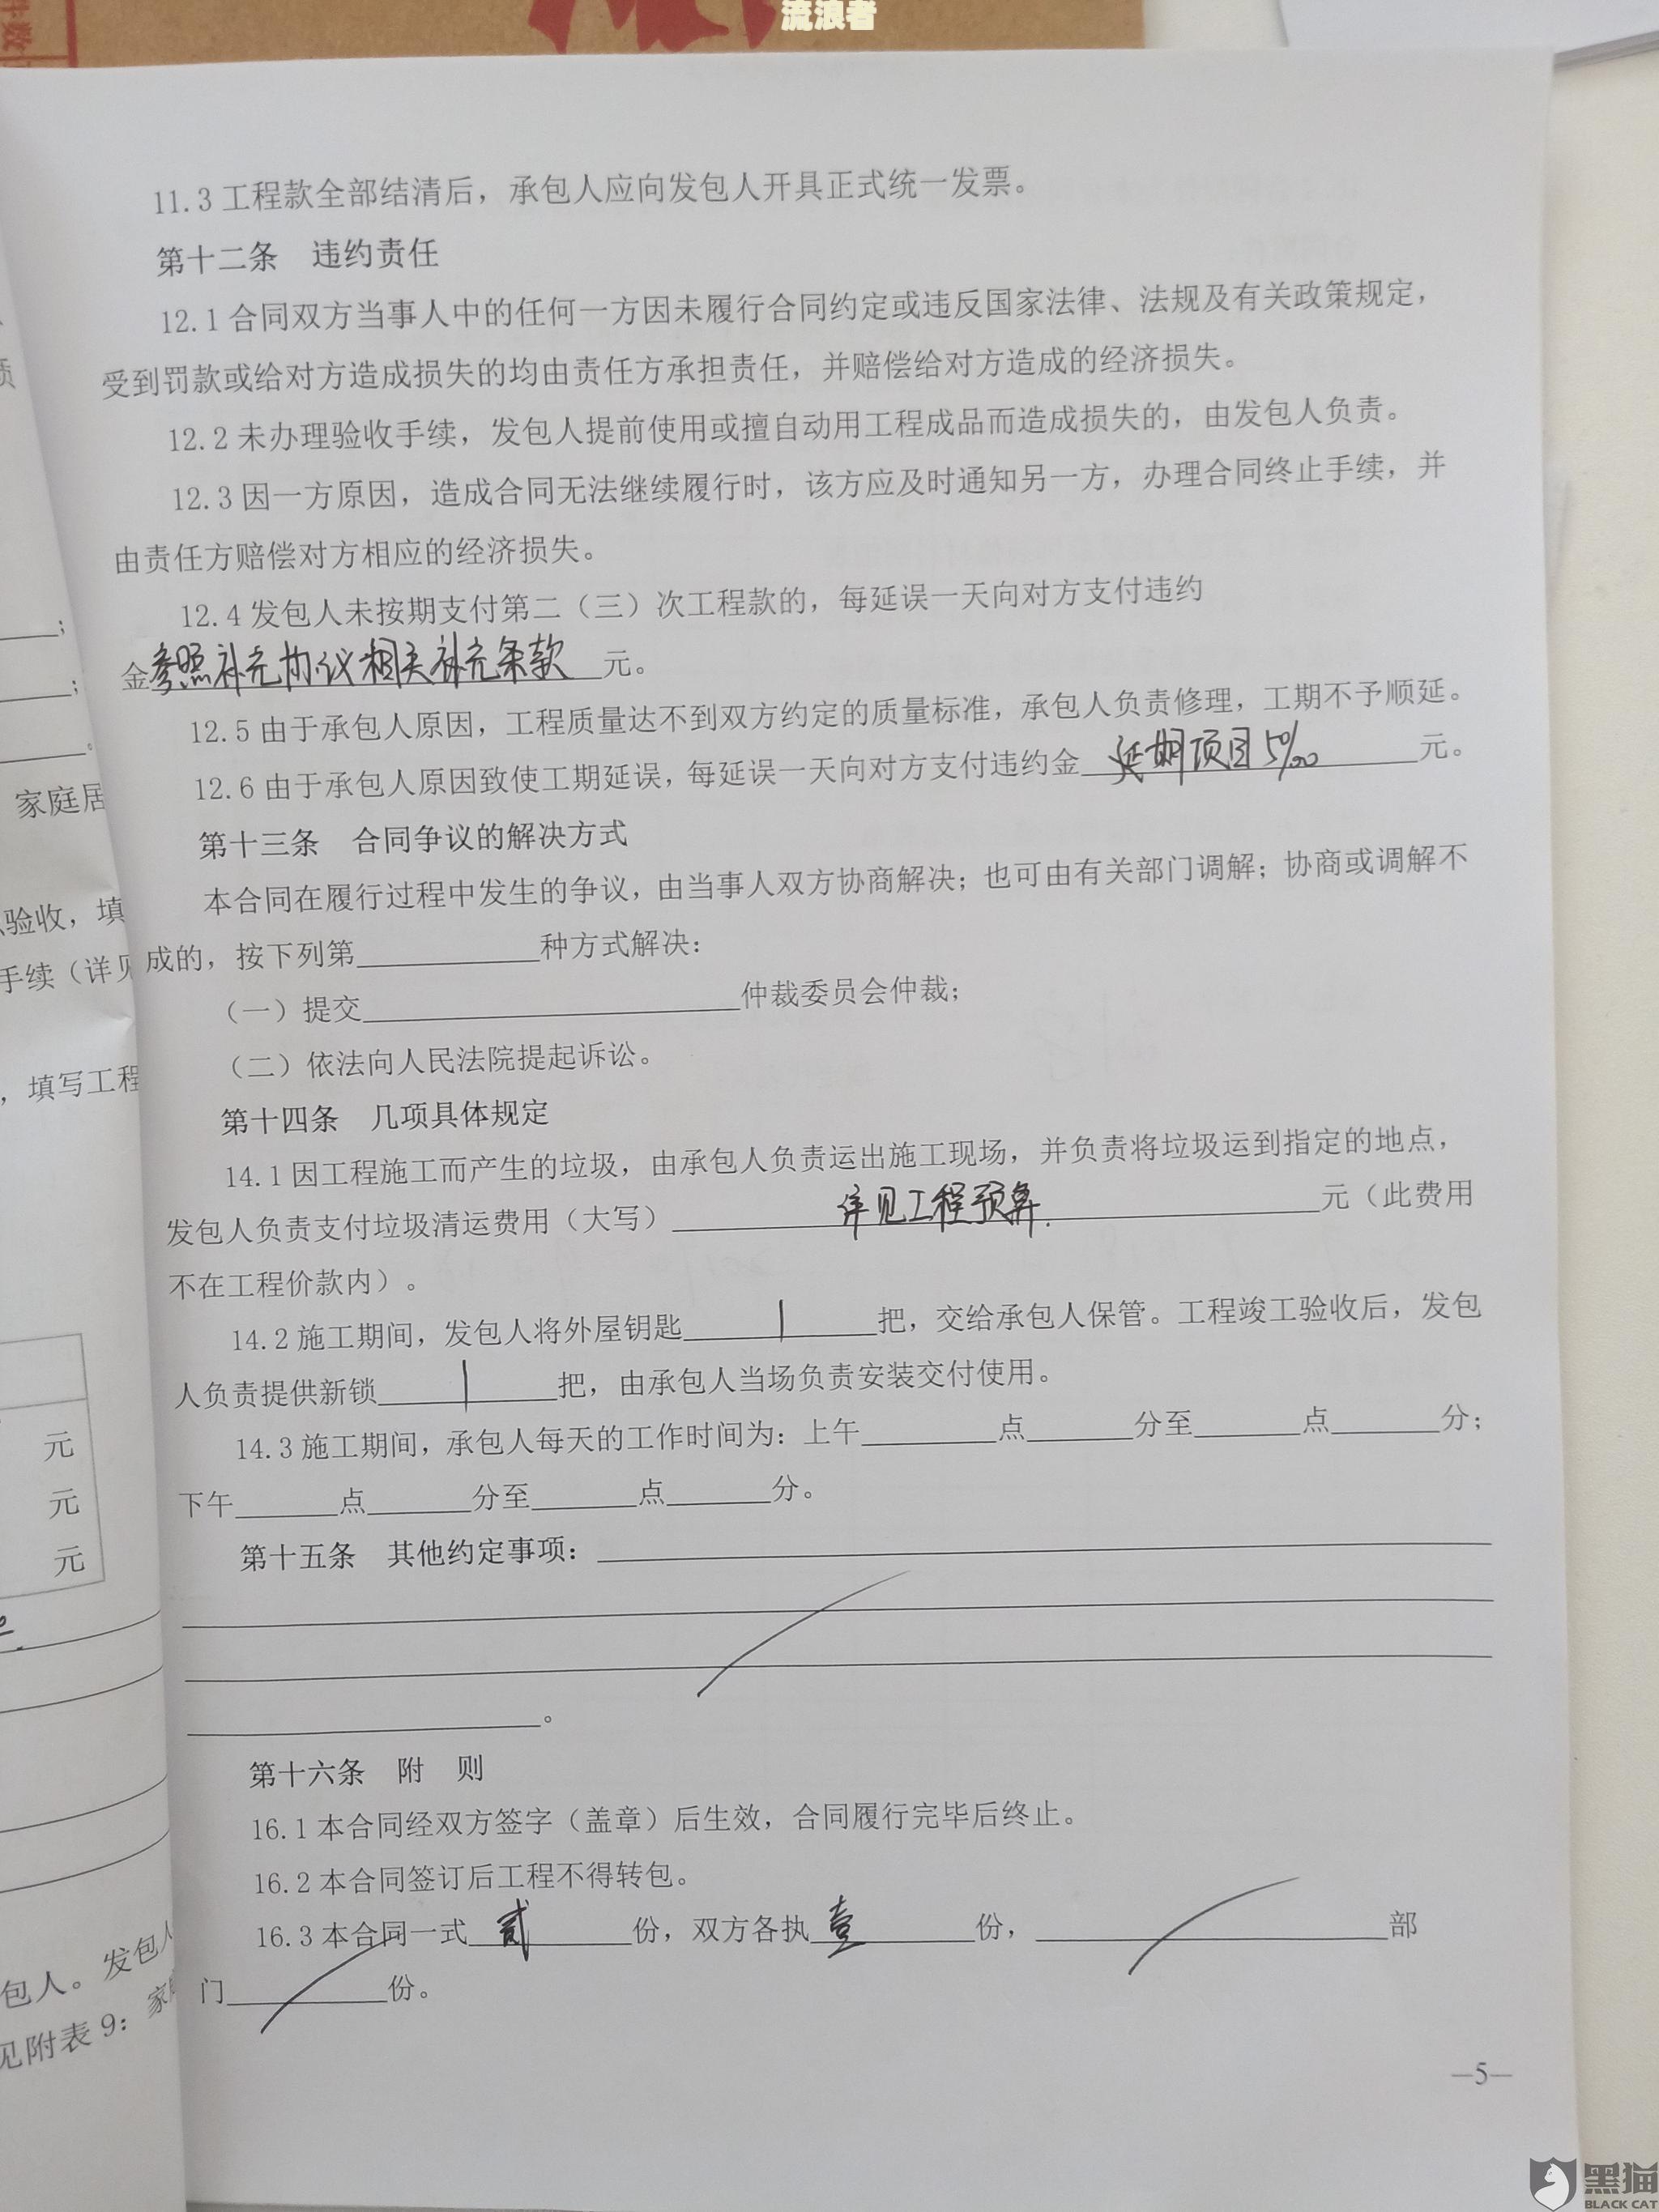 流浪者
11.3 工程款全部结清后，承包人应向发包人开具正式统一发票。
第十二条 违约责任
12.1 合同双方当事人中的任何一方因未履行合同约定或违反国家法律、法规及有关政策规定，
受到罚款或给对方造成损失的均由责任方承担责任，并赔偿给对方造成的经济损失。
12.2 未办理验收手续，发包人提前使用或擅自动用工程成品而造成损失的，由发包人负责。
12.3 因一方原因，造成合同无法继续履行时，该方应及时通知另一方，办理合同终止手续，并
由责任方赔偿对方相应的经济损失。
12.4 发包人未按期支付第二（三）次工程款的，每延误一天向对方支付违约
金参照补充协议相关补充条款元。
12.5 由于承包人原因，工程质量达不到双方约定的质量标准，承包人负责修理，工期不予顺延。
12.6 由于承包人原因致使工期延误，每延误一天向对方支付违约金 延期项目5‰ 元。
第十三条 合同争议的解决方式
本合同在履行过程中发生的争议，由当事人双方协商解决；也可由有关部门调解；协商或调解不
成的，按下列第______种方式解决：
（一）提交______仲裁委员会仲裁；
（二）依法向人民法院提起诉讼。
第十四条 几项具体规定
14.1 因工程施工而产生的垃圾，由承包人负责运出施工现场，并负责将垃圾运到指定的地点，
发包人负责支付垃圾清运费用（大写） 详见工程预算. 元（此费用
不在工程价款内）。
14.2 施工期间，发包人将外屋钥匙 1 把，交给承包人保管。工程竣工验收后，发包
人负责提供新锁 1 把，由承包人当场负责安装交付使用。
14.3 施工期间，承包人每天的工作时间为：上午____点____分至____点____分；
下午____点____分至____点____分。
第十五条 其他约定事项：
。
第十六条 附 则
16.1 本合同经双方签字（盖章）后生效，合同履行完毕后终止。
16.2 本合同签订后工程不得转包。
16.3 本合同一式 贰 份，双方各执 壹 份，______部
门______份。
—5—
；
；
。
家庭居
验收，填
手续（详见
，填写工程
元
元
元
包人。发包人
见附表9：家
黑猫
BLACK CAT